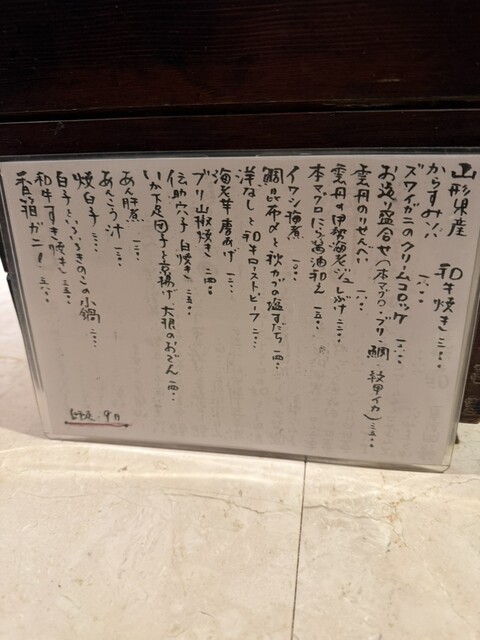 山形県産 和牛焼き 三〇〇〇
からすみ
ズワイガニのクリームコロッケ 一八〇〇
お造り盛合せ(本マグロ・ブリ・鯛・紋甲イカ)三五〇〇
雲丹のりせんべい 一八〇〇
雲丹の伊勢海老ジュレがけ 三三〇〇
本マグロにら醤油和え 一五〇〇
イワシ梅煮 一〇〇〇
鯛昆布〆と秋カブの塩すだち 一四〇〇
洋なしと和牛ローストビーフ 二〇〇〇
海老芋唐あげ 一二〇〇
ブリ山椒焼き 二四〇〇
伝助穴子白焼き 三五〇〇
いか下足団子と京揚げ、大根のおでん 一四〇〇
あん肝煮 一三〇〇
あんこう汁 一三〇〇
焼白子 二三〇〇
白子といろいろきのこの小鍋 二三〇〇
和牛すき焼き 三五〇〇
香箱ガニ 三八〇〇